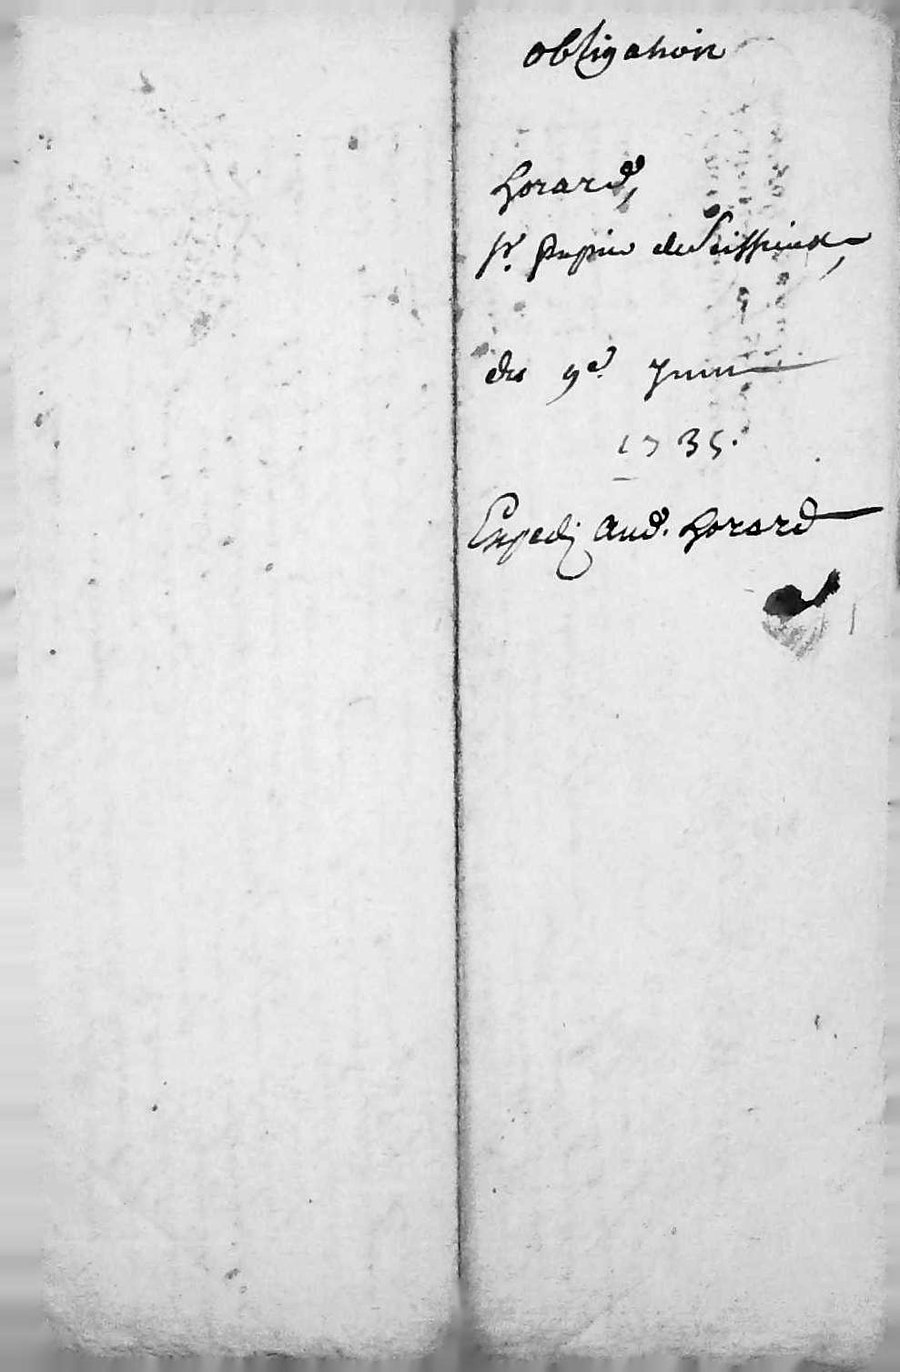 obligation
horard,
Sr. pupin de
du 9e. Juin
1735.
Expedi aud. horard